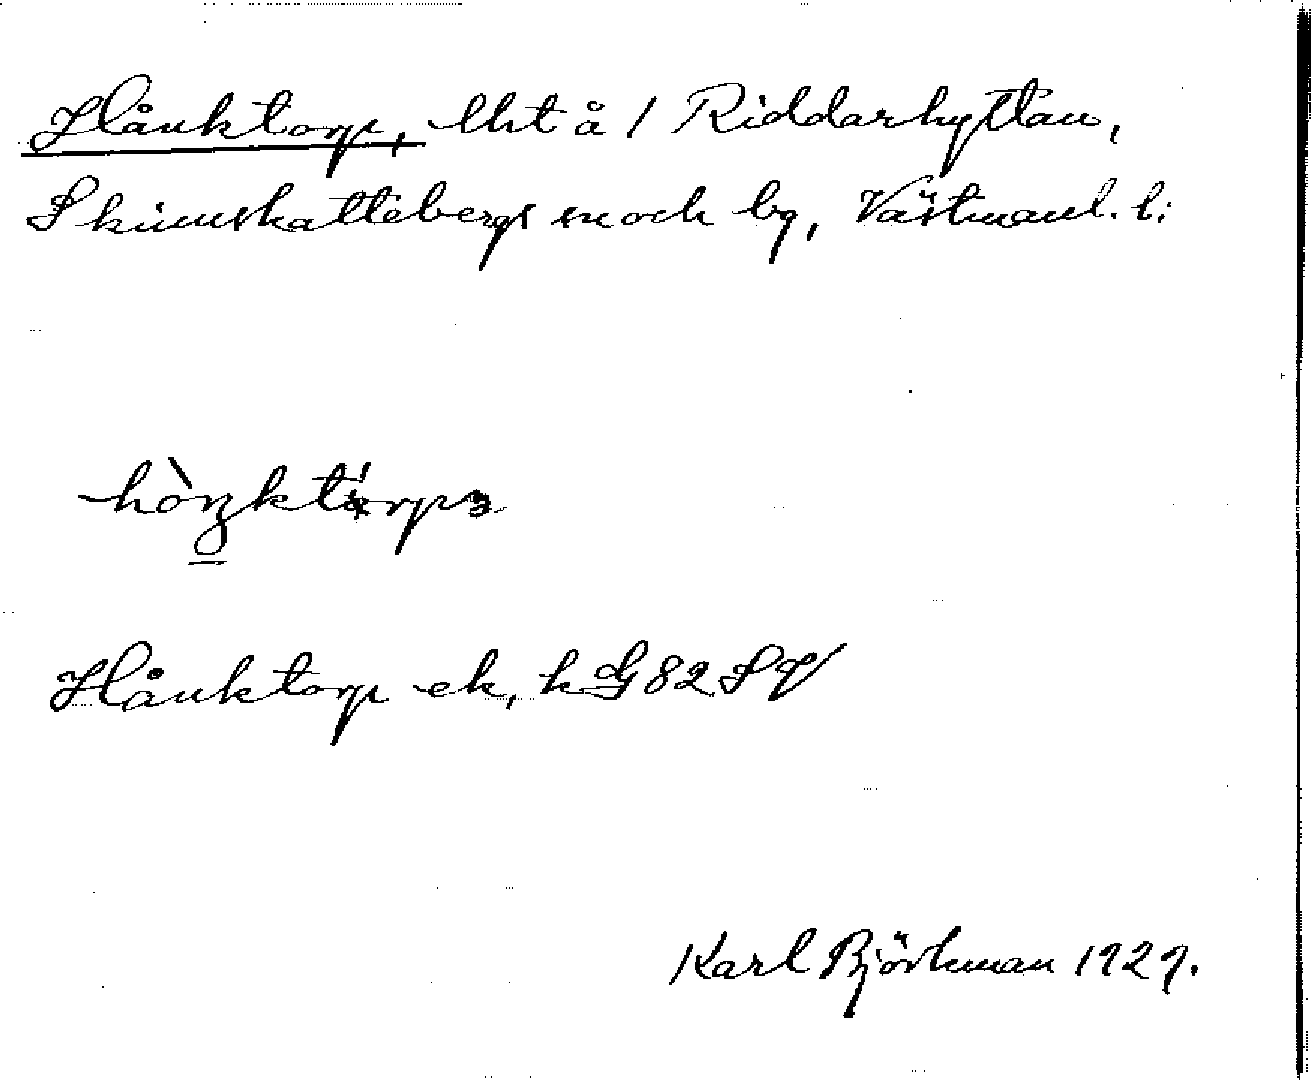 Hånktorp, lht å 1 Riddarhyttan,
Skinnskattebergs sn och bg, Västmanl. l:
Hånktorp ek, k G 82 SV
Karl Björkman 1929.